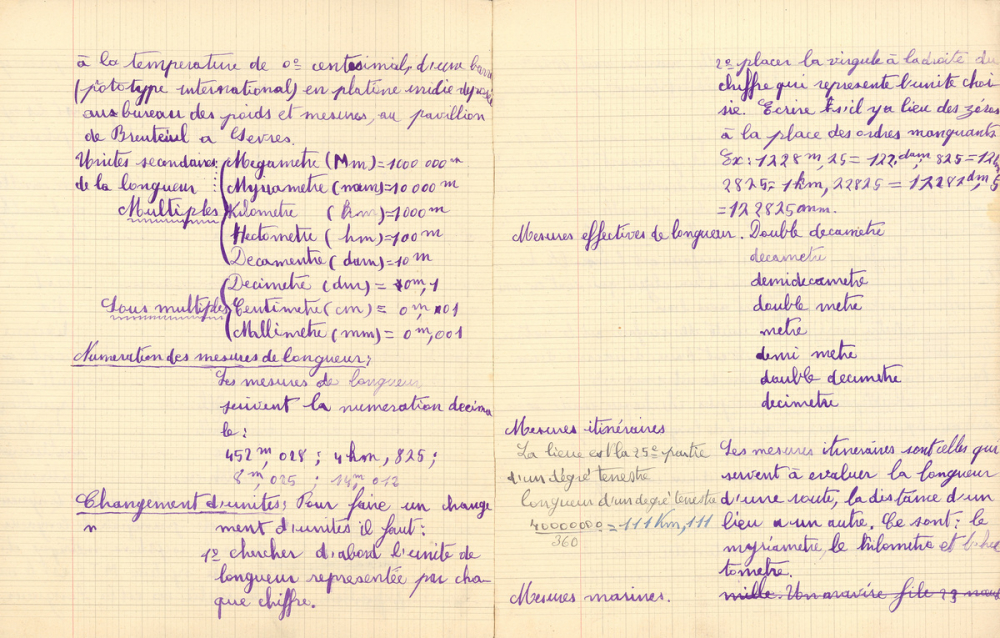 à la temperature de 0º centesimal, d'une barre
(pototype international) en platine iridie depose
aus bureau des poids et mesures, au pavillion
de Breuteuil a Sevres.
Unites secondaires: Megametre (Mm) = 1000 000 m
de la longueur : Myriametre (mam) = 10 000 m
Multiples Kilometre (km) = 1000 m
Hectometre (hm) = 100 m
Decamentre (dam) = 10 m
Decimetre (dm) = 0m,1
Sous multiples Centimetre (cm) = 0m,01
Millimetre (mm) = 0m,001
Numeration des mesures de longueur;
Les mesures de longueur
suivent la numeration decima
le:
452m,028 ; 4km,825;
8m,025 ; 14m,012
Changement d'unites; Pour faire un change
n ment d'unités il faut:
1º chercher d'abord l'unite de
longueur representée par cha-
que chiffre.
2º placer la virgule à la droite du
chiffre qui represente l'unite choi
sie. Ecrire s'il y a lieu des zéros
à la place des ordres manquants
Ex: 1228m,25 = 122dam,825 =
2825 = 1km,22825 = 12282dm,5
= 122825cmm.
Mesures effectives de longueur. Double decametre
decametre
demidecametre
double metre
metre
demi metre
double decimetre
decimetre
Mesures itinéraires
La lieue est la 25e partie
d'un dégré terrestre
longueur d'un degré terrestre
40000000 = 111Km,111
360
Les mesures itineraires sont celles qui
servent à evaluer la longueur
d'une route, la distance d'un
lieu a un autre. Ce sont: le
myriametre, le kilometre et l'hec
tometre.
Mesures marines. mille. Un navire file 23